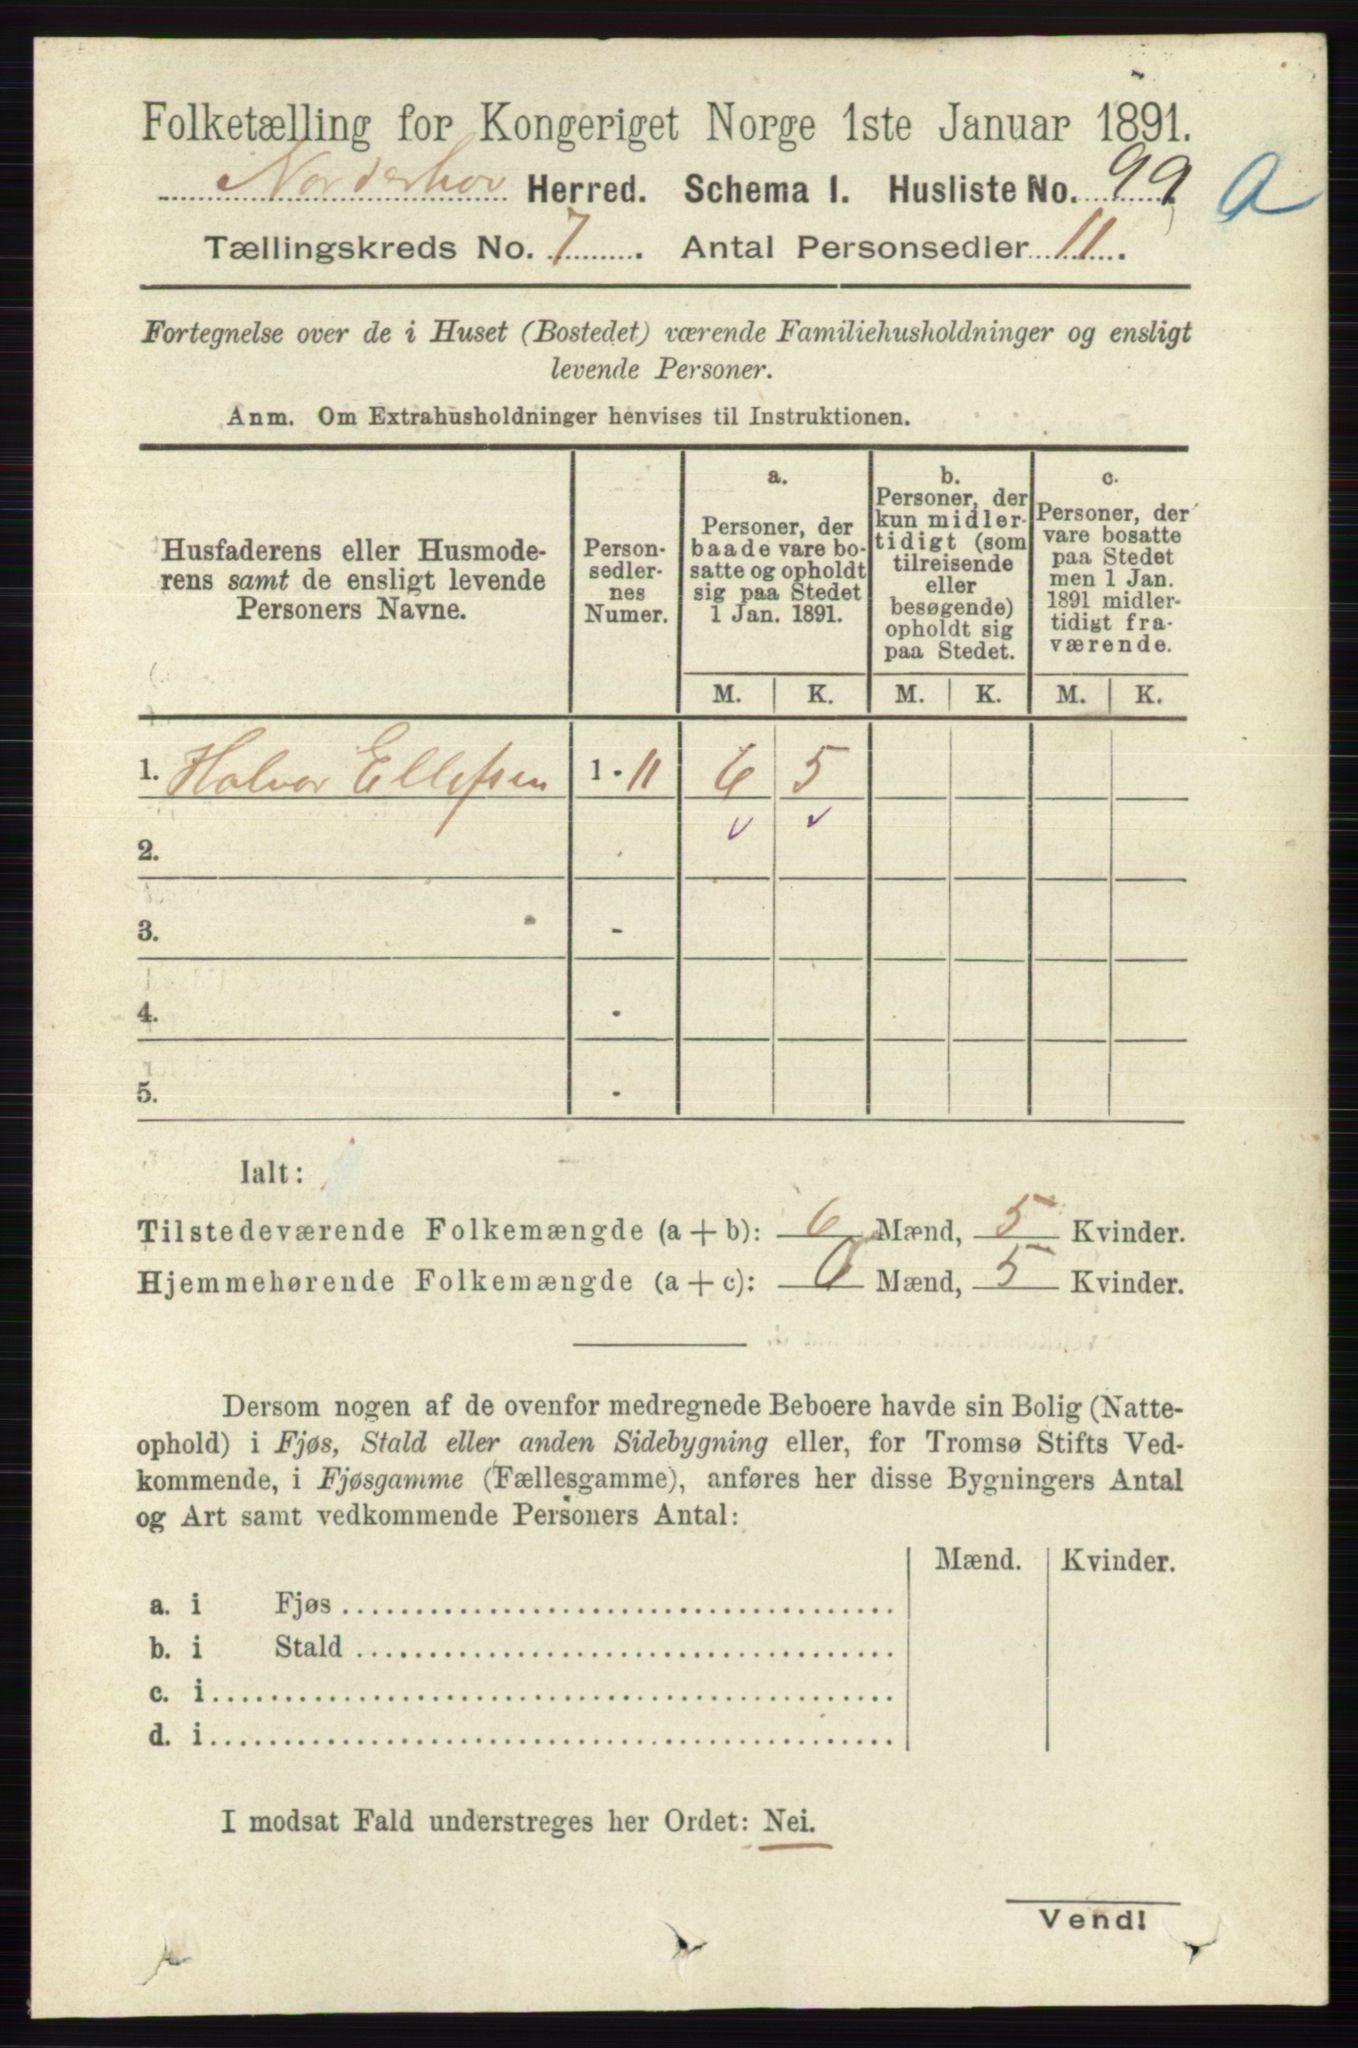 Folketælling for Kongeriget Norge 1ste Januar 1891.
Norderhov Herred. Schema I. Husliste No. 99 a
Tællingskreds No. 7. Antal Personsedler 11.
Fortegnelse over de i Huset (Bostedet) værende Familiehusholdninger og ensligt
levende Personer.
Anm. Om Extrahusholdninger henvises til Instruktionen.
Husfaderens eller Husmode-
rens samt de ensligt levende
Personers Navne.
Person-
sedler-
nes
Numer.
a.
Personer, der
baade vare bo-
satte og opholdt
sig paa Stedet
1 Jan. 1891.
b.
Personer, der
kun midler-
tidigt (som
tilreisende
eller
besøgende)
opholdt sig
paa Stedet.
c.
Personer, der
vare bosatte
paa Stedet
men 1 Jan.
1891 midler-
tidigt fra-
værende.
M. K. M. K. M. K.
1. Halvor Ellefsen 1 - 11 6 5
2. -
3. -
4. -
5. -
Ialt:
Tilstedeværende Folkemængde (a + b): 6 Mænd, 5 Kvinder.
Hjemmehørende Folkemængde (a + c): 6 Mænd, 5 Kvinder.
Dersom nogen af de ovenfor medregnede Beboere havde sin Bolig (Natte-
ophold) i Fjøs, Stald eller anden Sidebygning eller, for Tromsø Stifts Ved-
kommende, i Fjøsgamme (Fællesgamme), anføres her disse Bygningers Antal
og Art samt vedkommende Personers Antal:
Mænd. Kvinder.
a. i Fjøs
b. i Stald
c. i
d. i
I modsat Fald understreges her Ordet: Nei.
Vend!